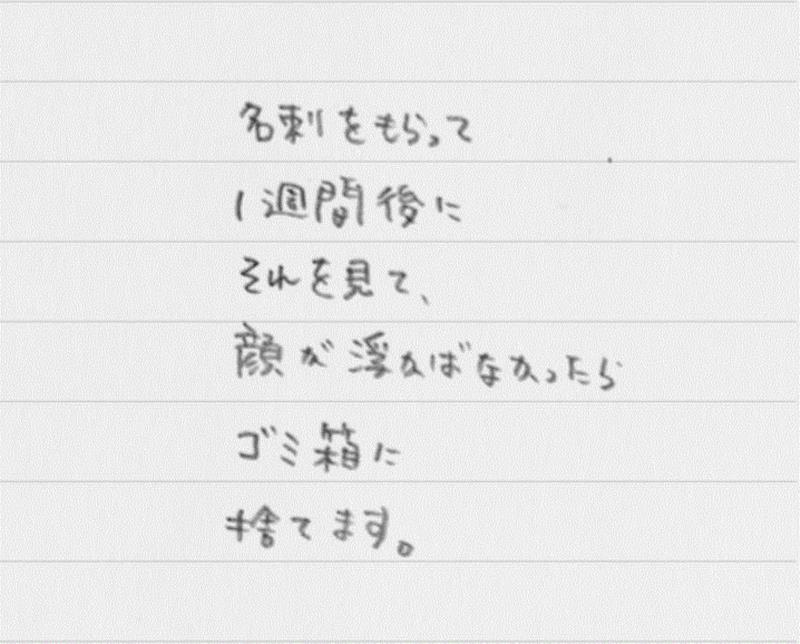 名刺をもらって
1週間後に
それを見て、
顔が浮かばなかったら
ゴミ箱に
捨てます。